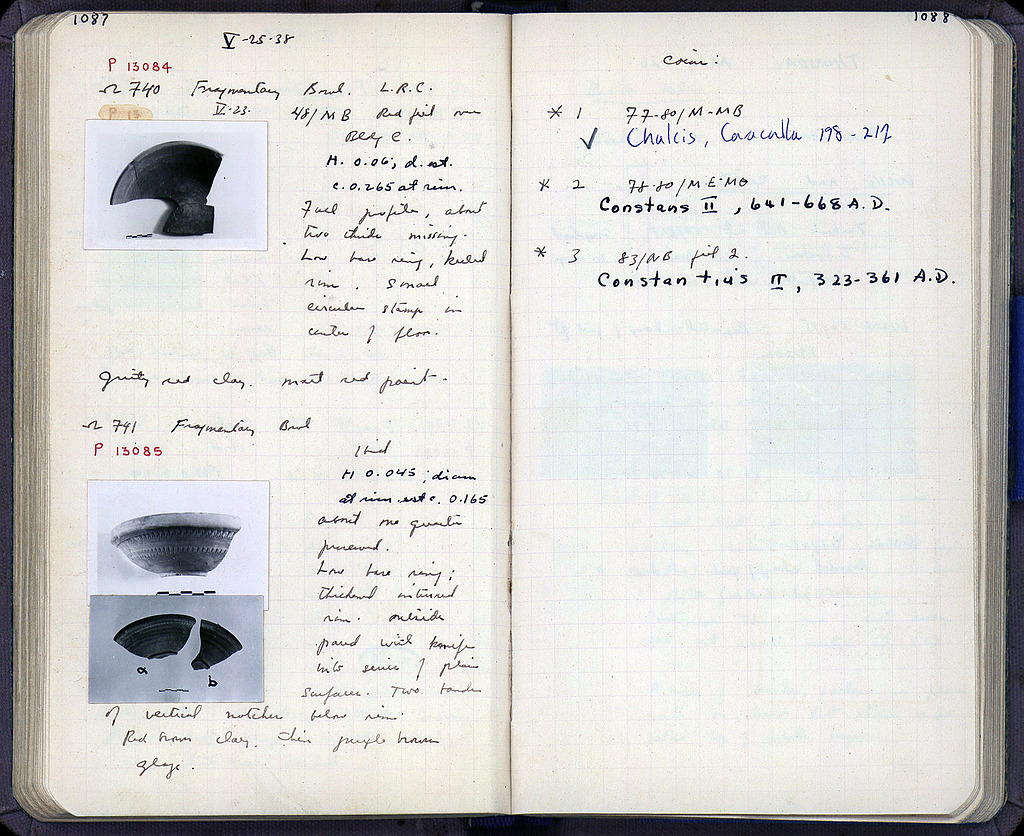 1087
V-25-38
P 13084
Ω 740 Fragmentary Bowl. L.R.C.
P 13
V-23. 48/MB Red fill over
Bldg C.
H. 0.06; d. est.
c. 0.265 at rim.
Full profile, about
two thirds missing.
Low base ring, keeled
rim. Small
circular stamp in
center of floor.
Gritty red clay. matt red paint.
Ω 741 Fragmentary Bowl
P 13085
Ibid
H 0.045; diam
at rim est c. 0.165
about one quarter
preserved.
Low base ring;
thickened inturned
rim. outside
pared with knife
into series of plain
surfaces. Two bands
of vertical notches below rim.
Red brown clay. thin purple brown
glaze.
a
b
1088
Coins:
* 1 77-80/M-MB
✓ Chalcis, Caracalla 198-217
* 2 78-80/ME-MG
Constans II, 641-668 A.D.
* 3 83/NB fill 2.
Constantius II, 323-361 A.D.